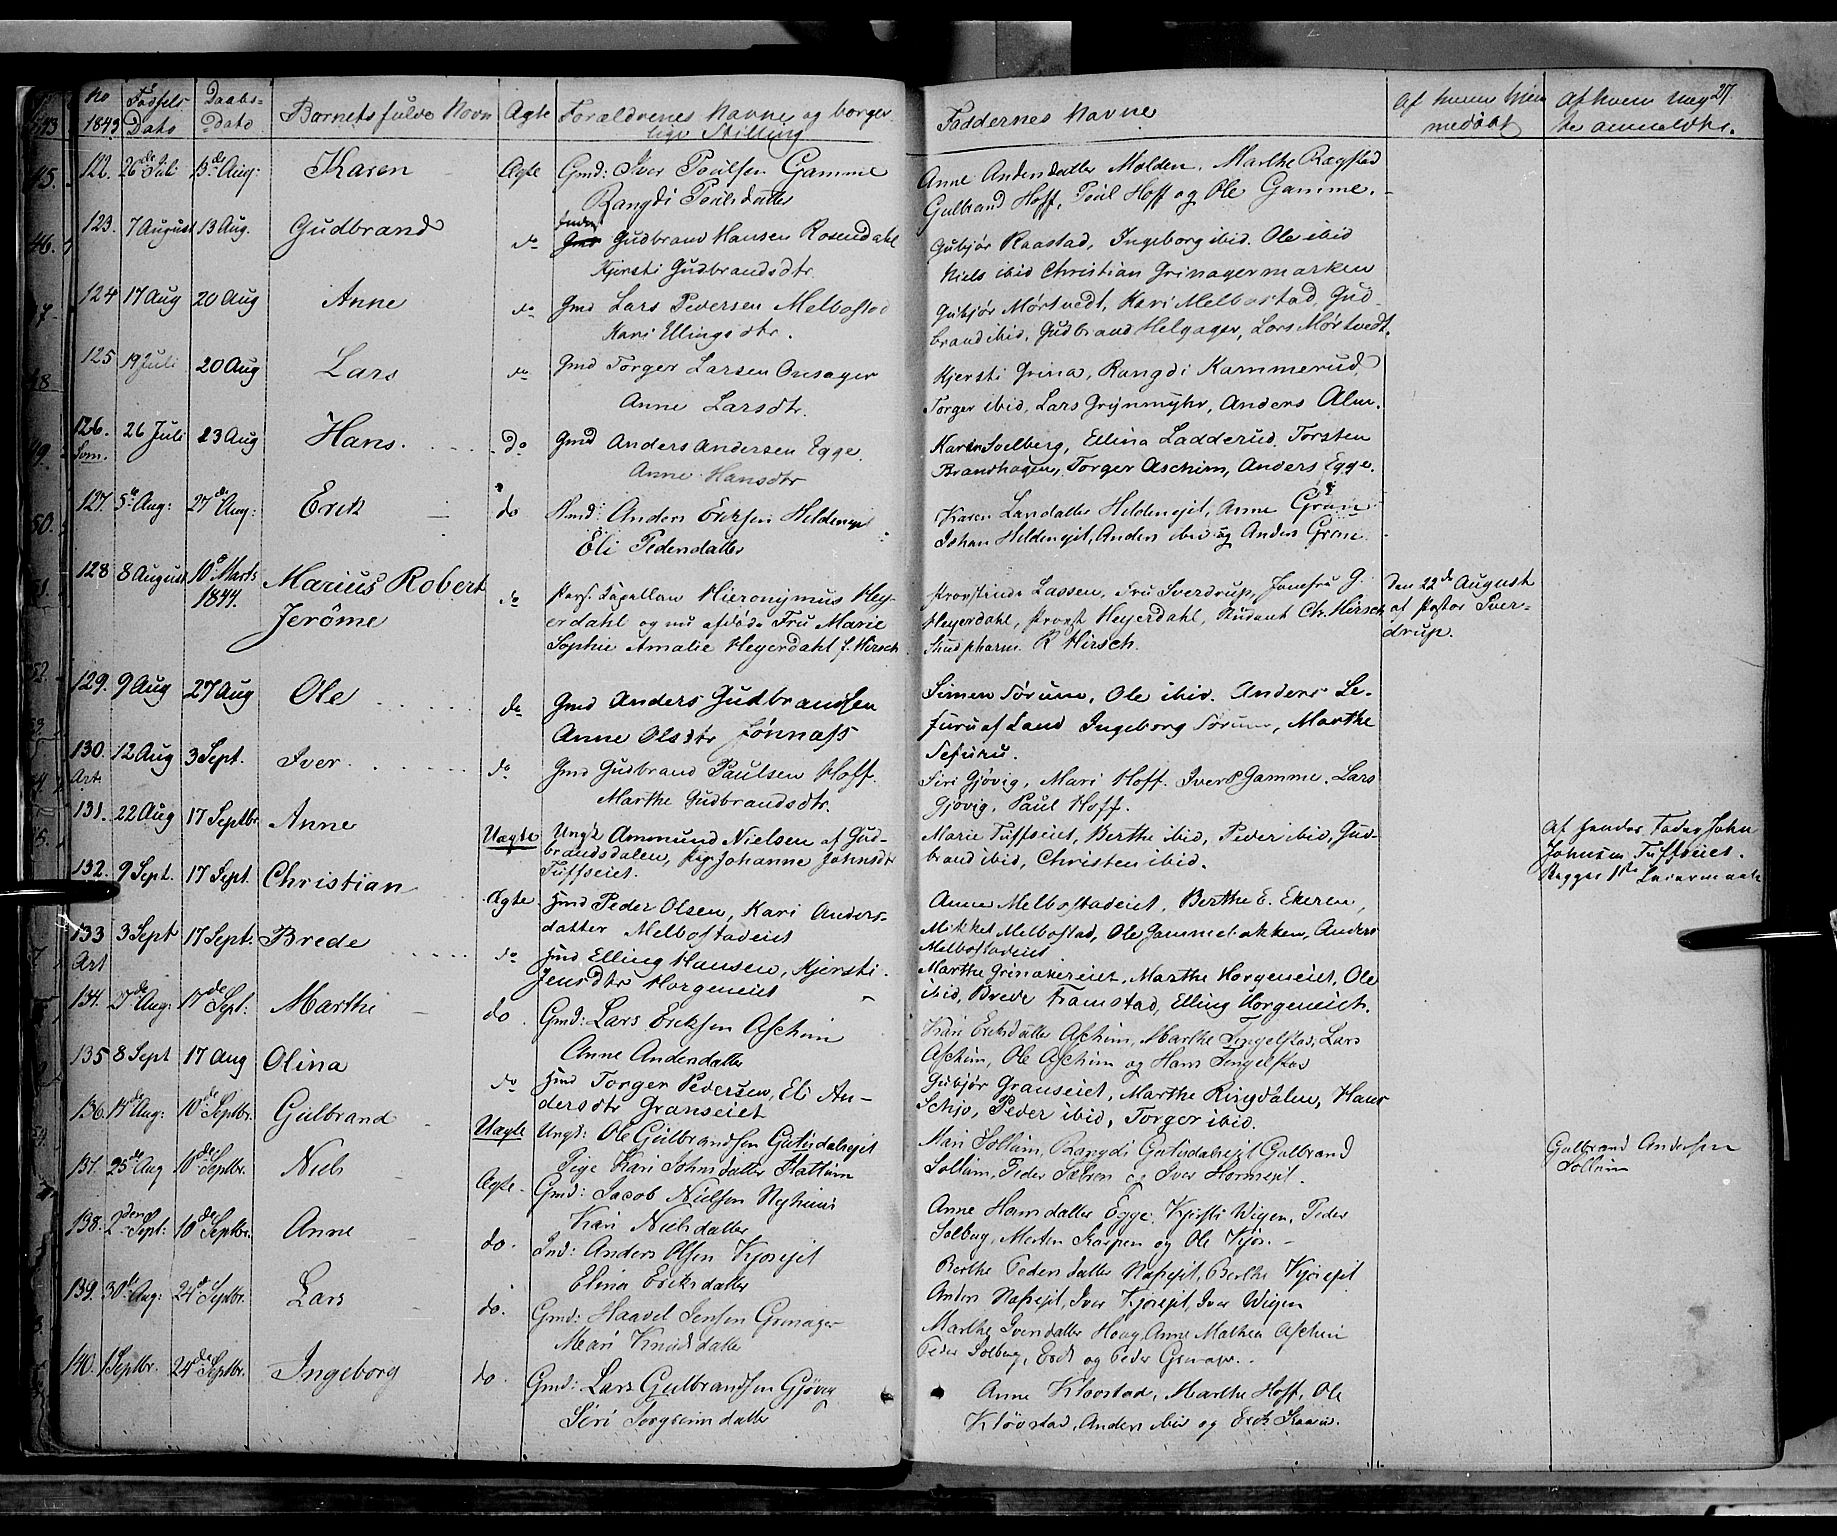 No 1843 Fødsels Dato Daabs-Dato Barnets fulde Navn Ægte Forældrenes Navne og borgerlige Stilling Faddernes Navne Af hvem hjemmedøbt Af hvem Uægte anmeldte. 27
122. 26de Juli 13de Aug: Karen Ægte Gmd: Iver Poulsen Gamme
Rangdi Poulsdatter
Anne Andersdatter Molden, Marthe Rægstad
Gulbrand Hoff, Poul Hoff og Ole Gamme.
123. 7 August 13 Aug. Gudbrand do Gudbrand Hansen Rosendahl
Kjersti Gudbrandsdtr.
Gubjør Raastad, Ingeborg ibid. Ole ibid
Niels ibid Christian Grinagermarken
124 17 Aug 20 Aug Anne do Gmd Lars Pedersen Melbostad
Kari Ellingsdtr.
Gubjør Mørtvedt, Kari Melbostad, Gud-
brand ibid, Gudbrand Helgager, Lars Mørtvedt.
125 19 Juli 20 Aug Lars do Gmd Torger Larsen Onsager
Anne Larsdtr.
Kjersti Grina, Rangdi Kammerud,
Torger ibid, Lars Grinmyhr, Anders Alm.
126. Som. 26 Juli 23 Aug Hans. Do Gmd Anders Andersen Egge
Anne Hansdtr
Karen Soelberg, Ellina Ladderud, Torsten
Brandhagen, Torger Aschim, Anders Egge.
127. 5te Aug: 27de Aug: Erik do Hmd: Anders Eriksen Heldeneje
Eli Pedersdatter
Karen Larsdatter Heldenejet, Anne Gran
Johan Heldenejet, Anders ibid og Anders Gran
128 8 August 10de Marts 1844. Marius Robert
Jerôme
do Pers. Capellan Hieronymus Hey-
erdahl og nu afdøde Fru Marie
Sophie Amalie Heyerdahl f. Hirsch
Provstinde Lassen, Fru Sverdrup, Jomfru G.
Heyerdahl, Provst Heyerdahl, Student Chr. Hirsch
Stud pharm. R Hirsch.
Den 22de August
af Pastor Sver-
drup.
129. 9 Aug 27 Aug Ole do Gmd Anders Gudbrandsen
Anne Olsdtr Jønnass
Simen Sørum, Ole ibid. Anders Se-
furu af Land Ingeborg Sørum, Marthe
Sefuru.
130. Art. 12 Aug 3 Sept. Iver do Gmd Gudbrand Paulsen Hoff.
Marthe Gudbrandsdtr.
Siri Gjøvig, Mari Hoff. Iver P Gamme. Lars
Gjøvig, Paul Hoff.
131. 22 Aug 17 Septbr Anne Uægte Ungk Ammund Nielsen af Gud-
brandsdalen, Pige Johanne Johnsdtr
Tuffseiet.
Marie Tuffseiet, Berthe ibid, Peder ibid, Gud-
brand ibid, Christen ibid.
Af hendes Fader John
Johnsen Tuffseiet.
Begges 1ste Leiermaal
132. 9 Sept. 17 Sept. Christian Ægte Hmd Peder Olsen, Kari Anders-
datter Melbostadeiet
Anne Melbostadeiet, Berthe E. Ekeren,
Mikkel Melbostad, Ole Jammebakken, Anders
Melbostadeiet
133 Art 3 Sept 17 Sept. Brede do Hmd Elling Hansen, Kjersti
Jensdtr Horgeneiet
Marthe Grinakereiet, Marthe Horgeneiet, Ole
ibid, Brede Framstad, Elling Horgeneiet.
134. 27de Aug: 17de Sept: Marthe do Gmd: Lars Eriksen Aschim
Anne Andersdatter
Kari Eriksdatter Aschim, Marthe Tingelstad, Lars
Aschim, Ole Aschim og Hans Tingelstad
135 8 Sept 17 Aug Olina do Hmd Torger Pedersen, Eli An-
dersdtr Granseiet
Gubjør Granseiet, Marthe Ringdalen, Hans
Schjo, Peder ibid, Torger ibid.
136. 14de Aug: 10de Septbr. Gulbrand Uægte Ungk: Ole Gulbrandsen Gutisdalsejet
Pige Kari Johnsdatter Flattum
Mari Sollum, Rangdi Gutisdalsejet Gulbrand
Sollum, Peder og Iver
Gulbrand Andersen
Sollum
137. 25de Aug 10de Septbr. Niels Ægte. Gmd: Jacob Nielsen Nyhuus
Kari Nielsdatter
Anne Hansdatter Egge, Kjersti Wigen, Peder
Solberg, Morten Karpen og Ole Kjos.
138. 2den Sept: 10de Septbr. Anne do. Ind: Anders Olsen Kjosejet
Elina Eriksdatter
Berthe Pedersdatter Næsejet, Berthe Kjosejet
Anders Næsejet, Iver Kjosejet, Iver Wigen
139. 30de Aug: 24de Septbr. Lars do. Gmd: Haavel Jensen Grinager
Mari Knudsdatter
Marthe Iversdatter Haug, Anne Mathea Aschim
Peder Solberg, Erik og Peder Grinager.
140. 1 Septbr. 24de Septbr. Ingeborg do. Gmd: Lars Gulbrandsen Gjøvig
Siri Torgrimsdatter
Anne Kløvstad, Marthe Hoff, Ole
Kløvstad, Anders ibid og Erik